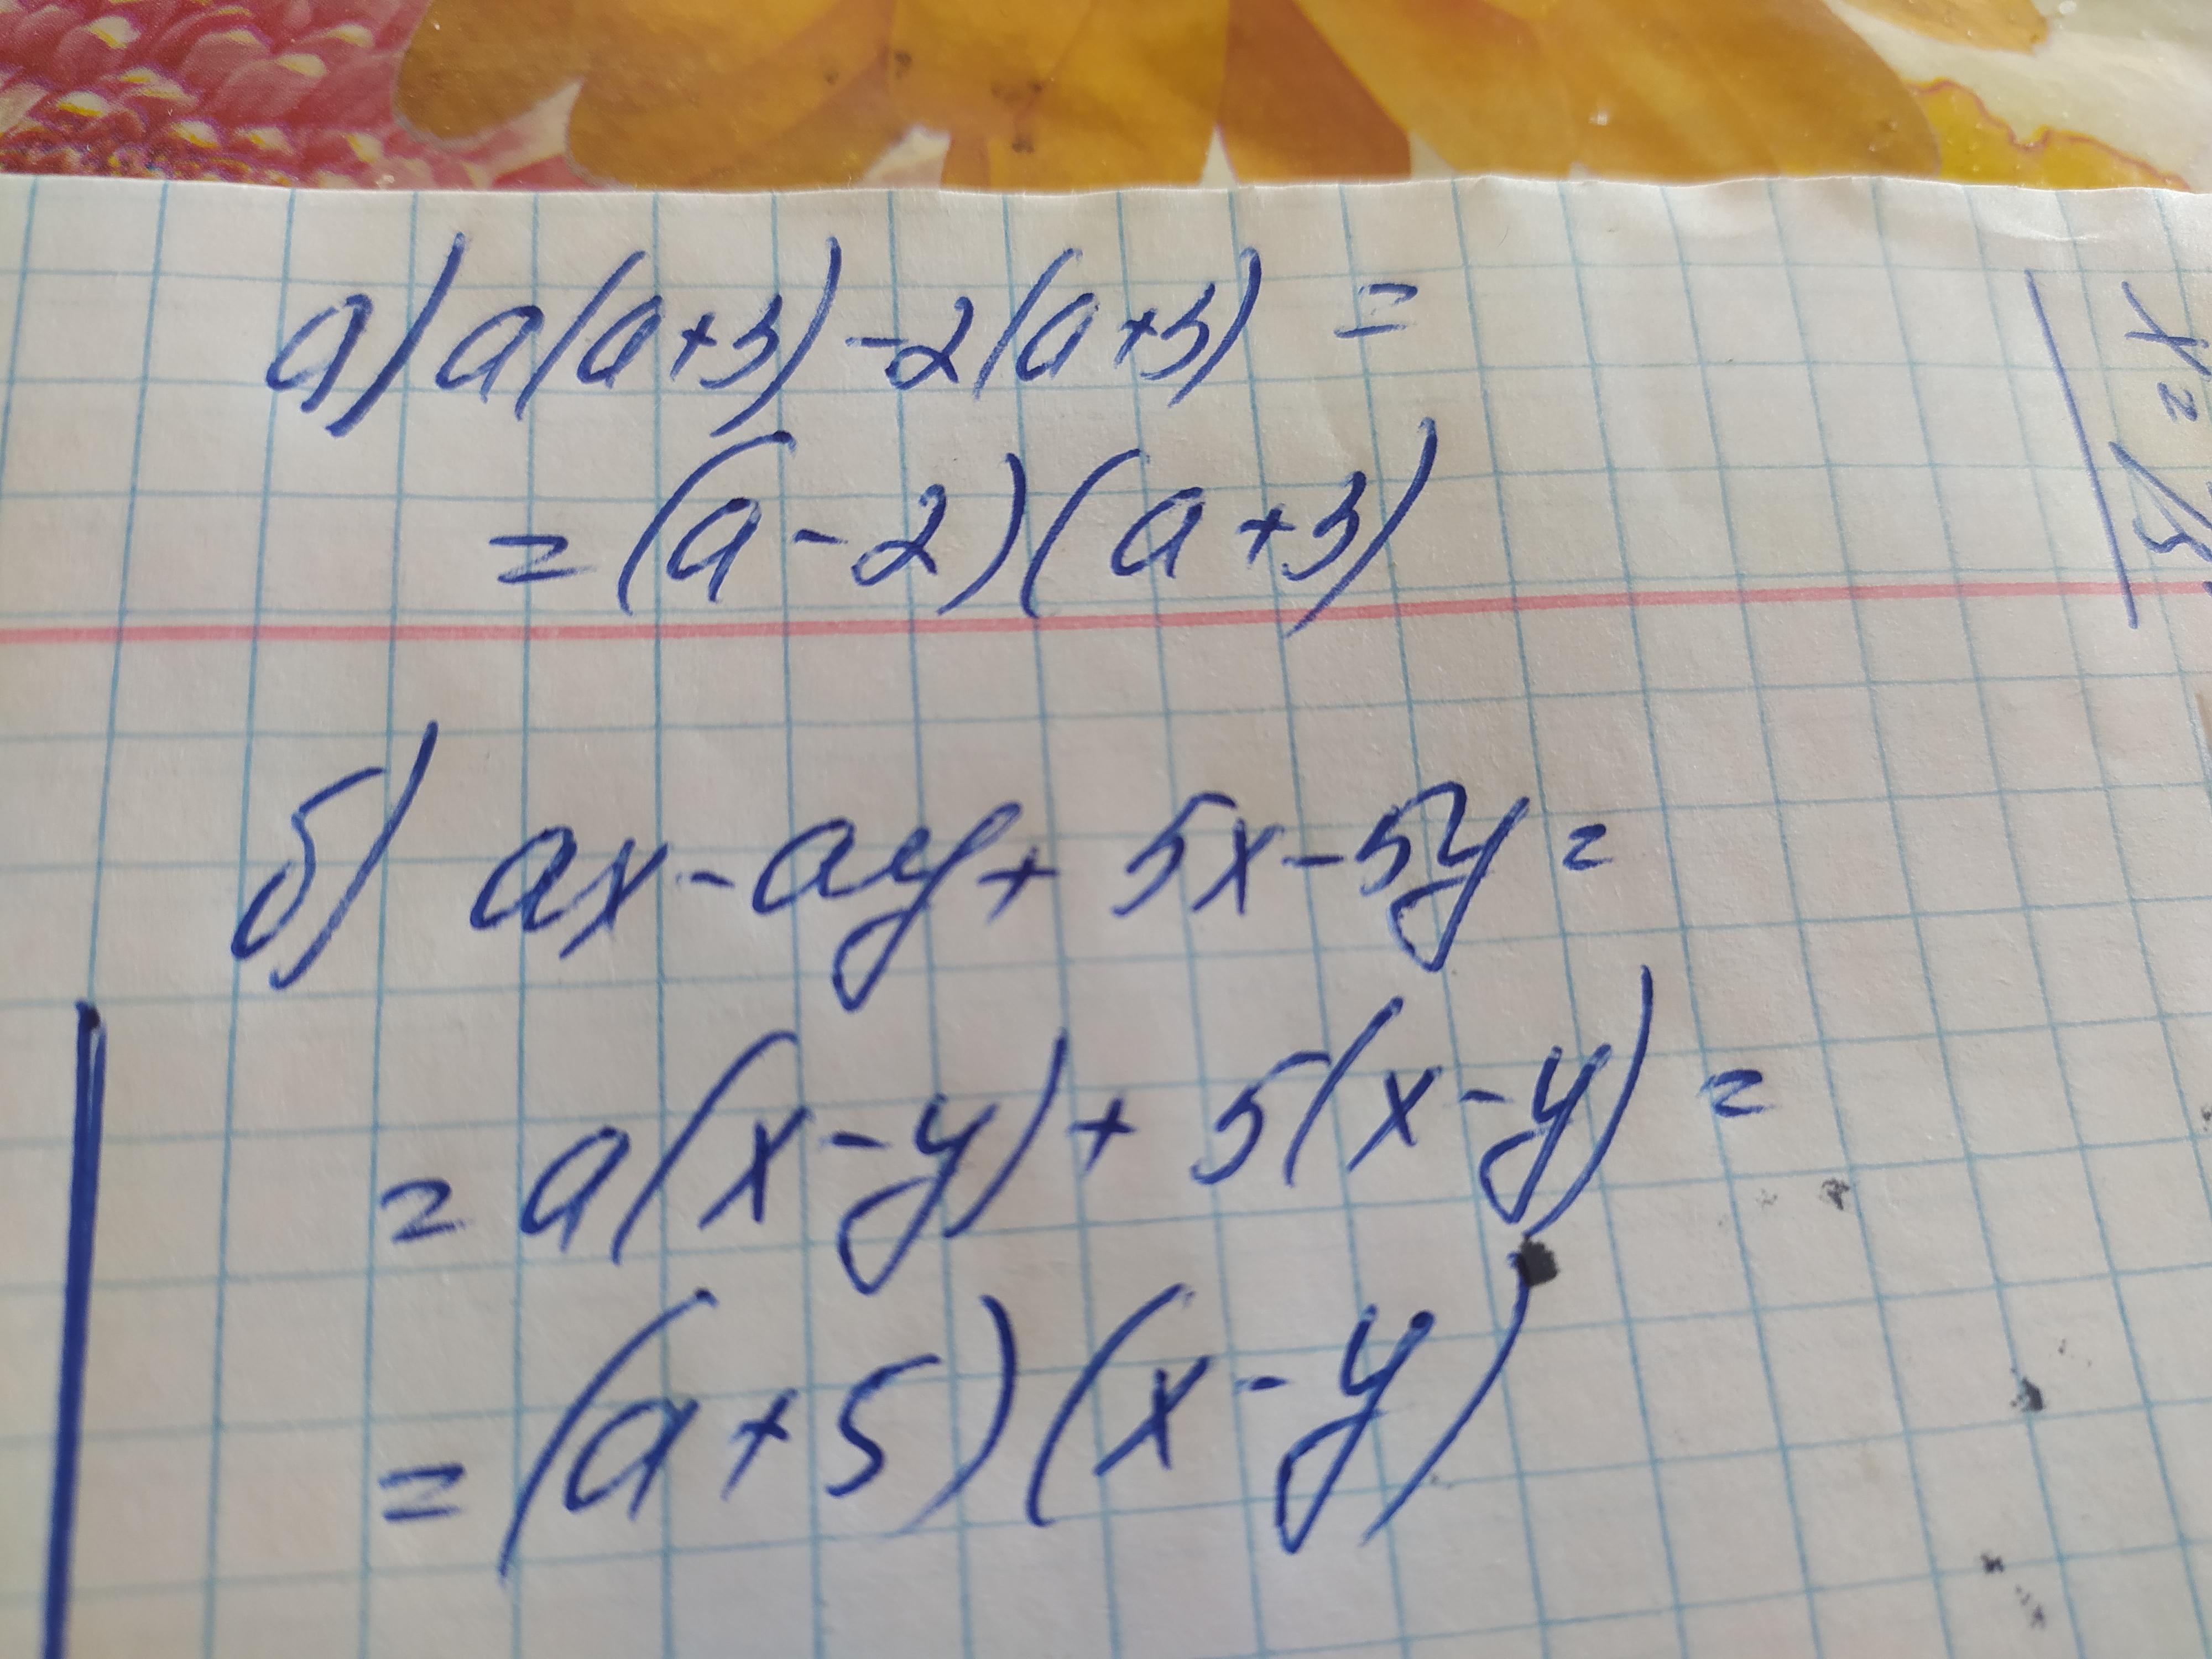 а) a(a+3)-2(a+3) =
= (a-2)(a+3)
б) ax-ay+5x-5y=
= a(x-y)+5(x-y) =
= (a+5)(x-y)